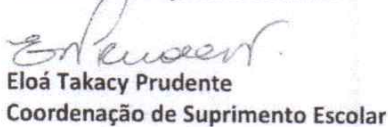 Eloá Takacy Prudente
Coordenação de Suprimento Escolar